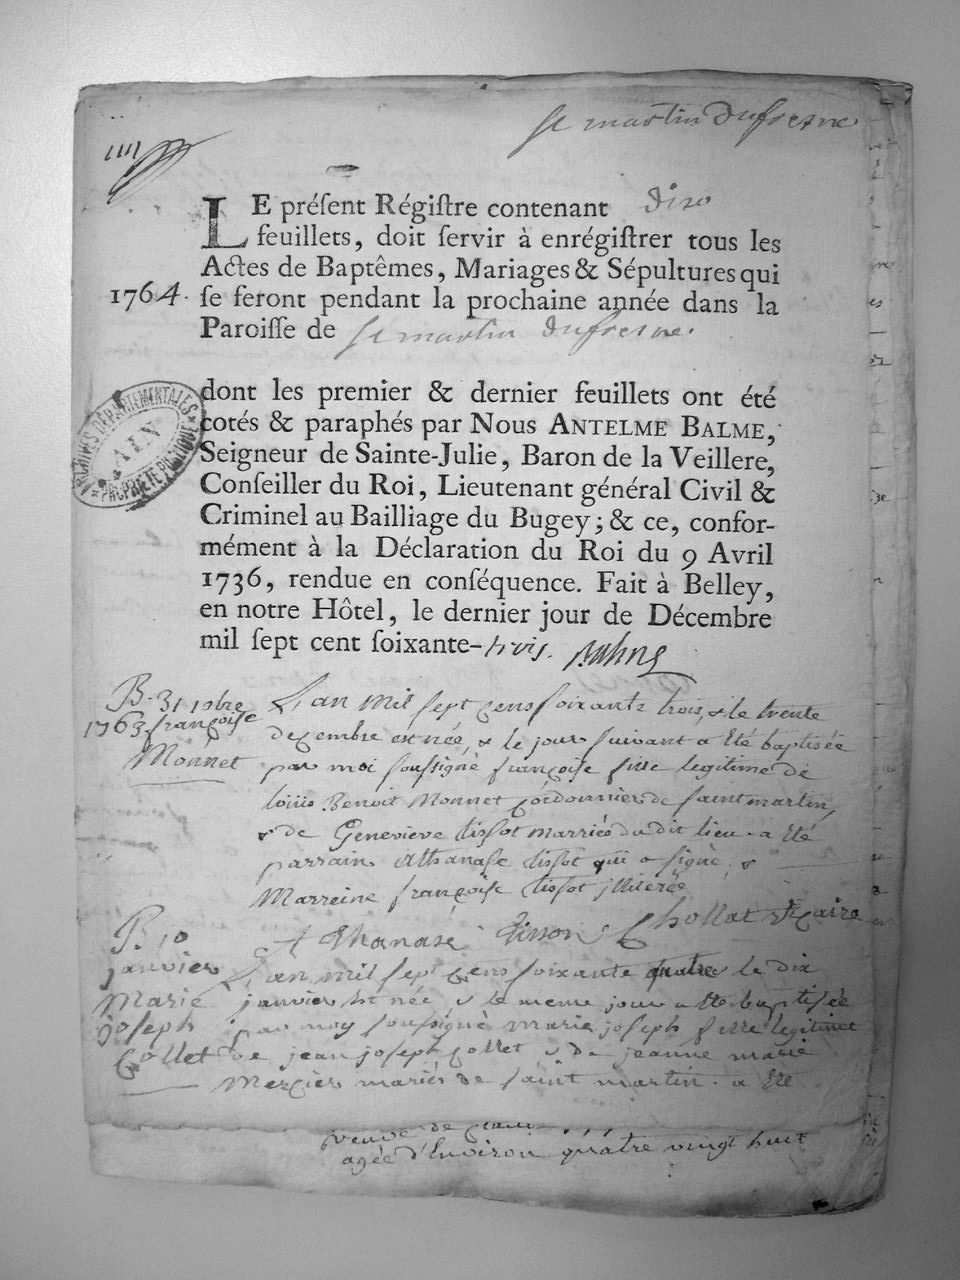 st martin Dufresne
LE préſent Régiſtre contenant dixo
feuillets, doit ſervir à enrégiſtrer tous les
Actes de Baptêmes, Mariages & Sépultures qui
1764. ſe feront pendant la prochaine année dans la
Paroiſſe de st martin Dufresne.
dont les premier & dernier feuillets ont été
cotés & paraphés par Nous ANTELME BALME,
Seigneur de Sainte-Julie, Baron de la Veillere,
Conſeiller du Roi, Lieutenant général Civil &
Criminel au Bailliage du Bugey; & ce, confor-
mément à la Déclaration du Roi du 9 Avril
1736, rendue en conſéquence. Fait à Belley,
en notre Hôtel, le dernier jour de Décembre
mil ſept cent ſoixante-trois. Balme
ARCHIVES DÉPARTEMENTALES
AIN
PROPRIÉTÉ PUBLIQUE
B. 31 xbre
1763 françoise
Monnet
L'an mil sept cens soixante trois, & le trente
decembre est née, & le jour suivant a été baptisée
par moi soussigné françoise fille legitime de
louis Benoit Monnet cordonnier de saint martin,
& de Genevieve tissot mariés dudit lieu. a été
parrain Athanase tissot qui a signé, &
Marreine françoise tissot illiterée
Athanase tisson Chollat vicaire
B 10
janvier
Marie
joseph
Collet
L'an mil sept cens soixante quatre le dix
janvier est née & le meme jour a été baptisée
par moy soussigné marie joseph fille legitime
de jean joseph Collet & de jeanne marie
Mercier mariés de saint martin. a été
veuve de
agée d'Environ quatre vingt huit